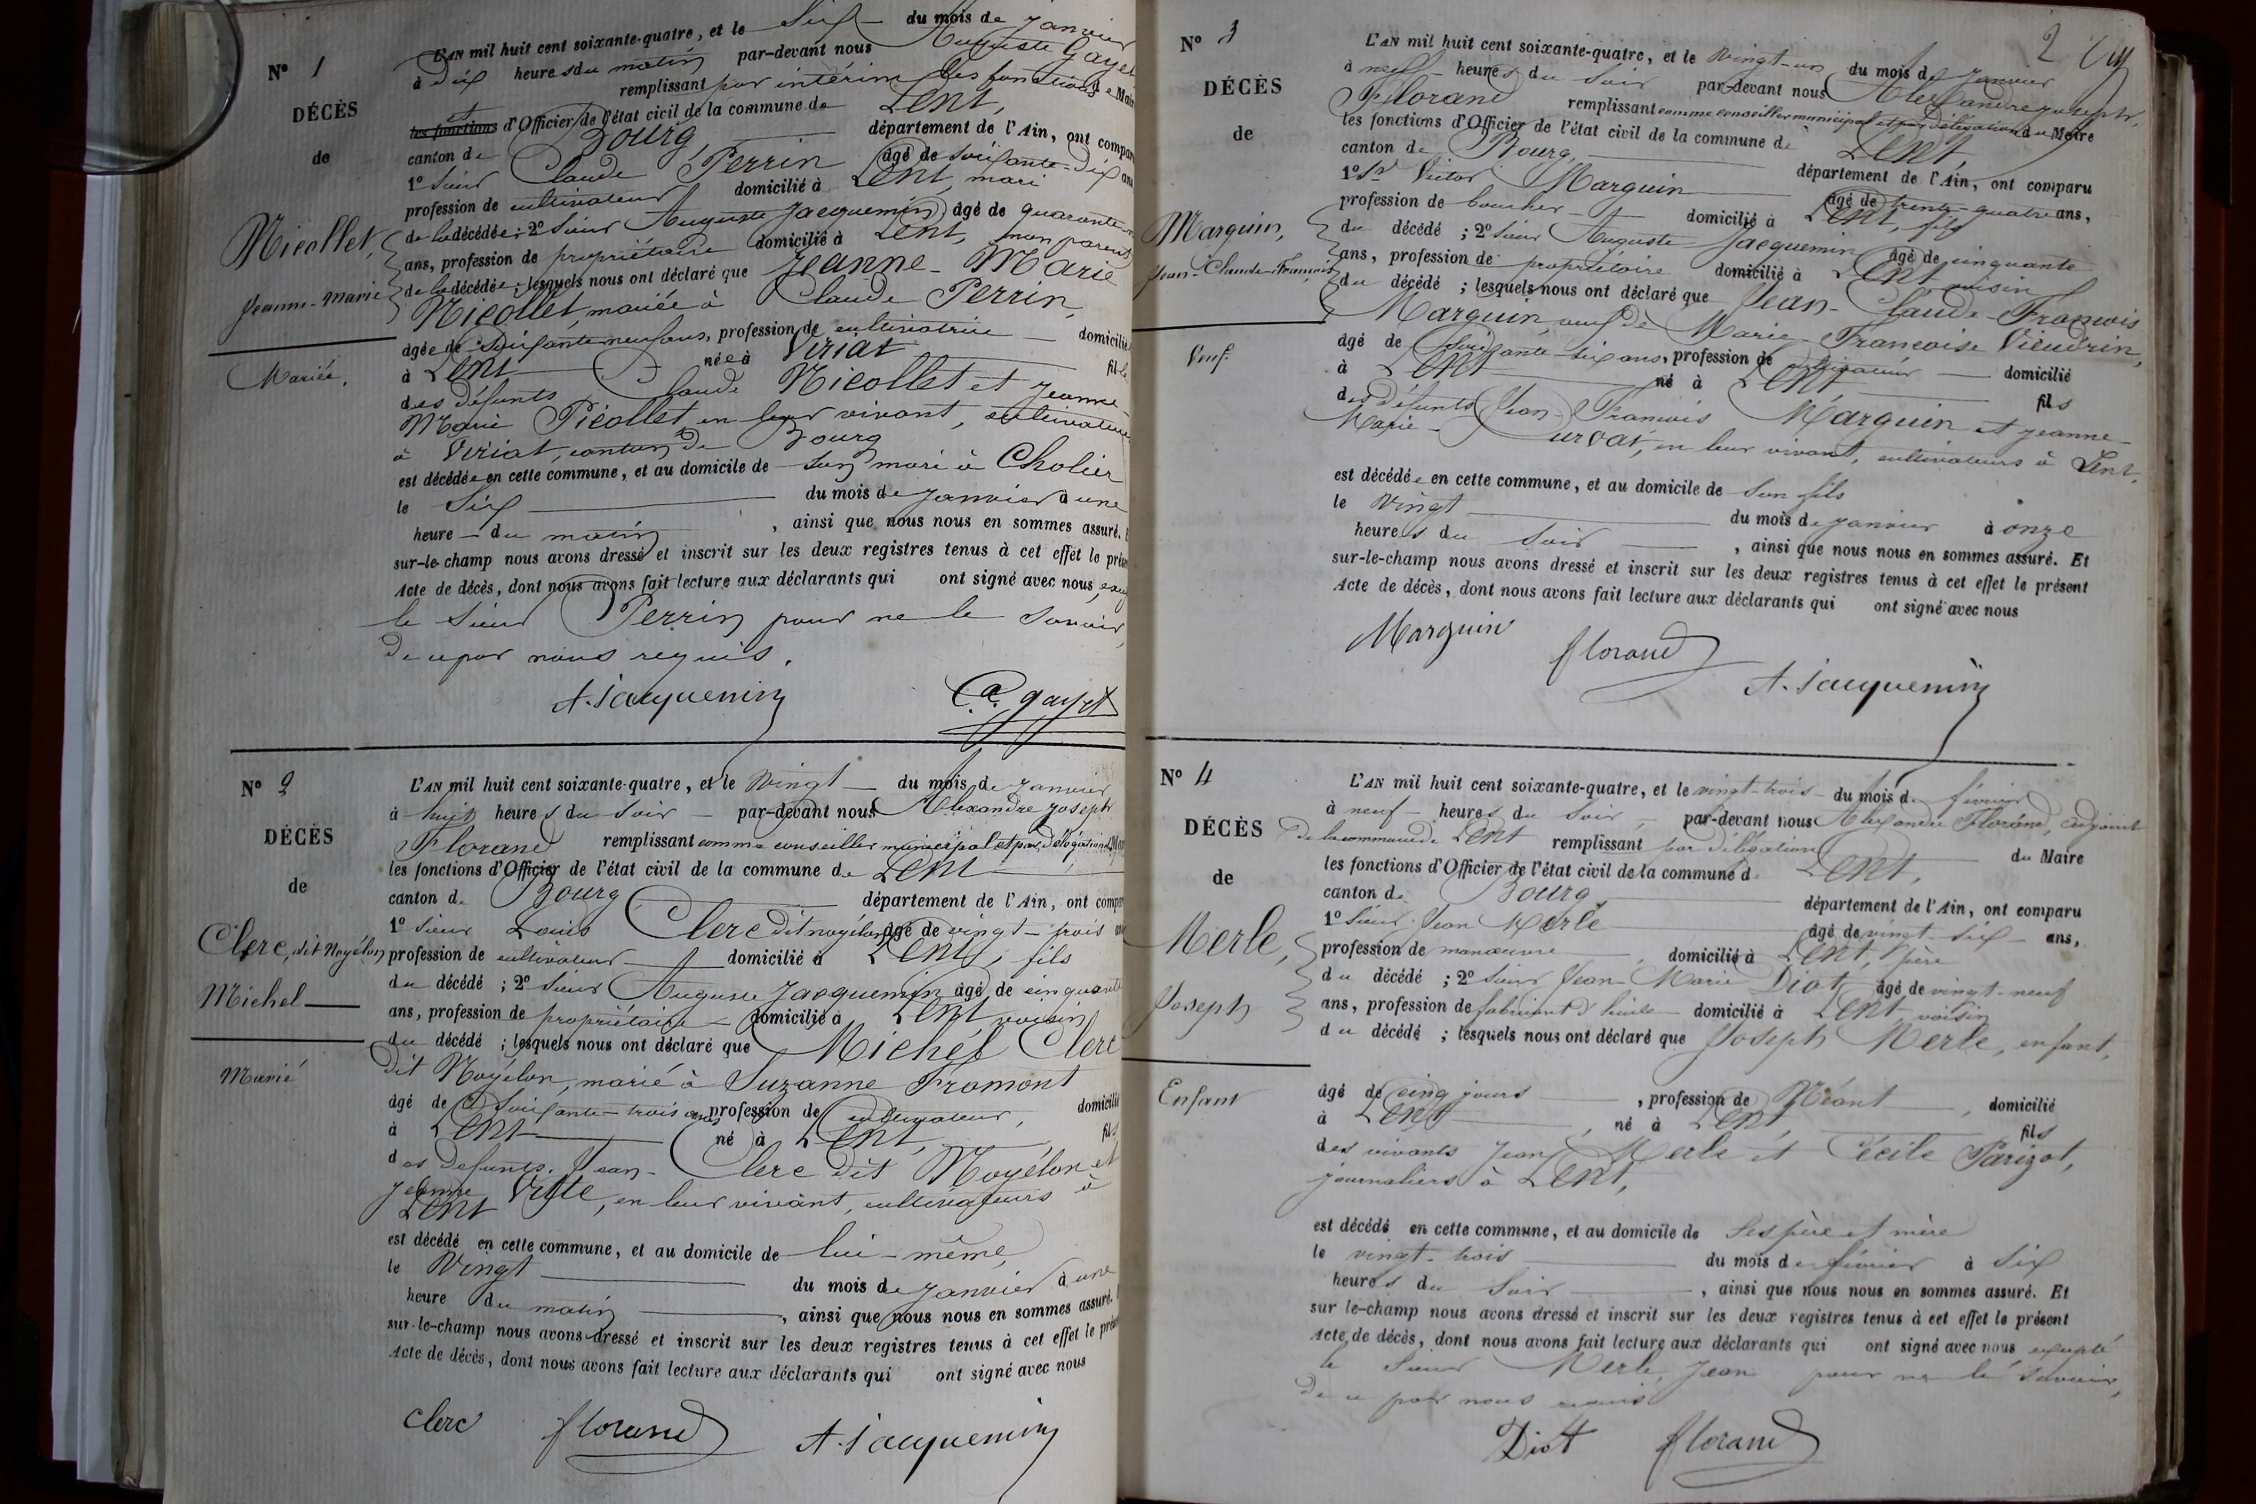 N° 1
DÉCÈS
de
Nicollet,
Jeanne-Marie
Mariée.
L'AN mil huit cent soixante-quatre, et le Six du mois de Janvier
à Dix heures du matin par-devant nous Auguste Gayet
remplissant par intérim les fonctions de Maire
et les fonctions d'Officier de l'état civil de la commune de Lent,
canton de Bourg département de l'Ain, ont comparu
1° Sieur Claude Perrin âgé de soixante-dix ans
profession de cultivateur domicilié à Lent, mari
de la décédée ; 2° Sieur Auguste Jacquemin âgé de quarante-
ans, profession de propriétaire domicilié à Lent, non parent
de la décédée ; lesquels nous ont déclaré que Jeanne-Marie
Nicollet, mariée à Claude Perrin,
âgée de soixante neuf ans, profession de cultivatrice domiciliée
à Lent née à Viriat fille
des défunts Claude Nicollet et Jeanne-
Marie Picollet, en leur vivant, cultivateurs
à Viriat, canton de Bourg
est décédée en cette commune, et au domicile de son mari à Cholier
le Six du mois de Janvier à une
heure du matin, ainsi que nous nous en sommes assuré. E
sur-le-champ nous avons dressé et inscrit sur les deux registres tenus à cet effet le prése
Acte de décès, dont nous avons fait lecture aux déclarants qui ont signé avec nous, excep
le Sieur Perrin pour ne le savoir,
de ce par nous requis.
A. Jacquemin
Ca. gayet
N° 2
DÉCÈS
de
Clerc, dit Noyélon
Michel
Marié
L'AN mil huit cent soixante-quatre, et le Vingt du mois de Janvier
à huit heures du soir par-devant nous Alexandre Joseph
Florand remplissant comme conseiller municipal et par délégation du Maire
les fonctions d'Officier de l'état civil de la commune de Lent
canton de Bourg département de l'Ain, ont compar
1° Sieur Louis Clerc dit noyélon âgé de vingt-trois ans
profession de cultivateur domicilié à Lent, fils
du décédé ; 2° Sieur Auguste Jacquemin âgé de cinquante
ans, profession de propriétaire domicilié à Lent, voisin
du décédé ; lesquels nous ont déclaré que Michel Clerc
dit Noyélon, marié à Suzanne Fromont
âgé de soixante-trois ans, profession de cultivateur, domicilié
à Lent né à Lent, fils
des défunts Jean-Clerc dit Noyélon et
Jeanne Vitte, en leur vivant, cultivateurs à
Lent
est décédé en cette commune, et au domicile de lui-même,
le Vingt du mois de Janvier à une
heure du matin, ainsi que nous nous en sommes assuré.
sur-le-champ nous avons dressé et inscrit sur les deux registres tenus à cet effet le prése
Acte de décès, dont nous avons fait lecture aux déclarants qui ont signé avec nous
Clerc florand A. Jacquemin
2
N° 3
DÉCÈS
de
Marguin,
Jean-Claude-François
Veuf.
L'AN mil huit cent soixante-quatre, et le Vingt-un du mois de Janvier
à neuf heures du soir par-devant nous Alexandre Joseph
Florand remplissant comme conseiller municipal et par délégation du Maire
les fonctions d'Officier de l'état civil de la commune de Lent
canton de Bourg, département de l'Ain, ont comparu
1° Sr Victor Marguin âgé de trente-quatre ans,
profession de boucher domicilié à Lent, fils
du décédé ; 2° Sieur Auguste Jacquemin âgé de cinquante
ans, profession de propriétaire domicilié à Lent voisin
du décédé ; lesquels nous ont déclaré que Jean-Claude-François
Marguin, veuf de Marie-Françoise Vieudrin,
âgé de Soixante-six ans, profession de cultivateur domicilié
à Lent né à Lent fils
des défunts Jean-François Marguin et Jeanne-
Marie-Curvat, en leur vivant, cultivateurs à Lent.
est décédé en cette commune, et au domicile de Son fils
le Vingt du mois de Janvier à onze
heures du soir, ainsi que nous nous en sommes assuré. Et
sur-le-champ nous avons dressé et inscrit sur les deux registres tenus à cet effet le présent
Acte de décès, dont nous avons fait lecture aux déclarants qui ont signé avec nous
Marguin florand A. Jacquemin
N° 4
DÉCÈS
de
Merle,
Joseph
Enfant
L'AN mil huit cent soixante-quatre, et le vingt-trois du mois de février
à neuf heures du soir, par-devant nous Alexandre Florand, adjoint
de la commune de Lent remplissant par délégation du Maire
les fonctions d'Officier de l'état civil de la commune d Lent,
canton de Bourg département de l'Ain, ont comparu
1° Sieur Jean Merle âgé de vingt-six ans,
profession de manœuvre, domicilié à Lent, père
du décédé ; 2° Sieur Jean-Marie Diot âgé de vingt-neuf
ans, profession de fabricant d'huile domicilié à Lent voisin
du décédé ; lesquels nous ont déclaré que Joseph Merle, enfant,
âgé de cinq jours, profession de Néant, domicilié
à Lent, né à Lent, fils
des vivants Jean Merle et Cécile Parizot,
journaliers à Lent,
est décédé en cette commune, et au domicile de Ses père et mère
le vingt-trois du mois de février à six
heures du soir, ainsi que nous nous en sommes assuré. Et
sur le-champ nous avons dressé et inscrit sur les deux registres tenus à cet effet le présent
Acte de décès, dont nous avons fait lecture aux déclarants qui ont signé avec nous excepté
le Sieur Merle, Jean pour ne le savoir,
de ce par nous requis
Diot florand